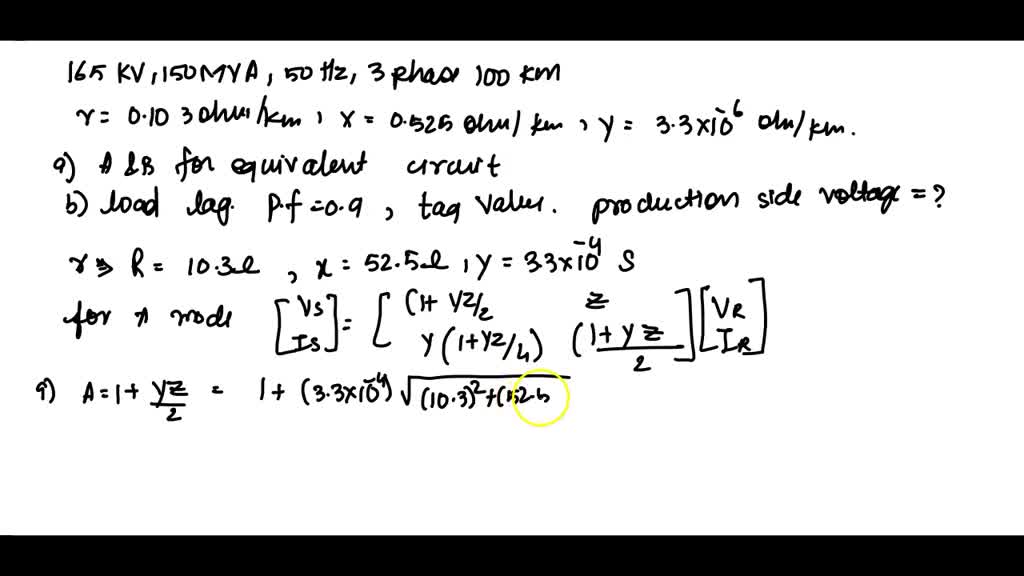 165 KV, 150 MVA, 50 Hz, 3 phase 100 km
r = 0.103 ohm/km, x = 0.525 ohm/km, y = 3.3×10⁻⁶ ohm/km.
a) A & B for equivalent circuit
b) load lag. P.f = 0.9, tag values. production side voltage = ?
r ⇒ R = 10.3Ω, x = 52.5Ω, y = 3.3×10⁻⁴ S
for π mode [Vs Is] = [(1+ YZ/2 Z
Y(1+YZ/4) (1+YZ/2)] [VR IR]
a) A = 1 + YZ/2 = 1 + (3.3×10⁻⁴) √(10.3)²+(52.5